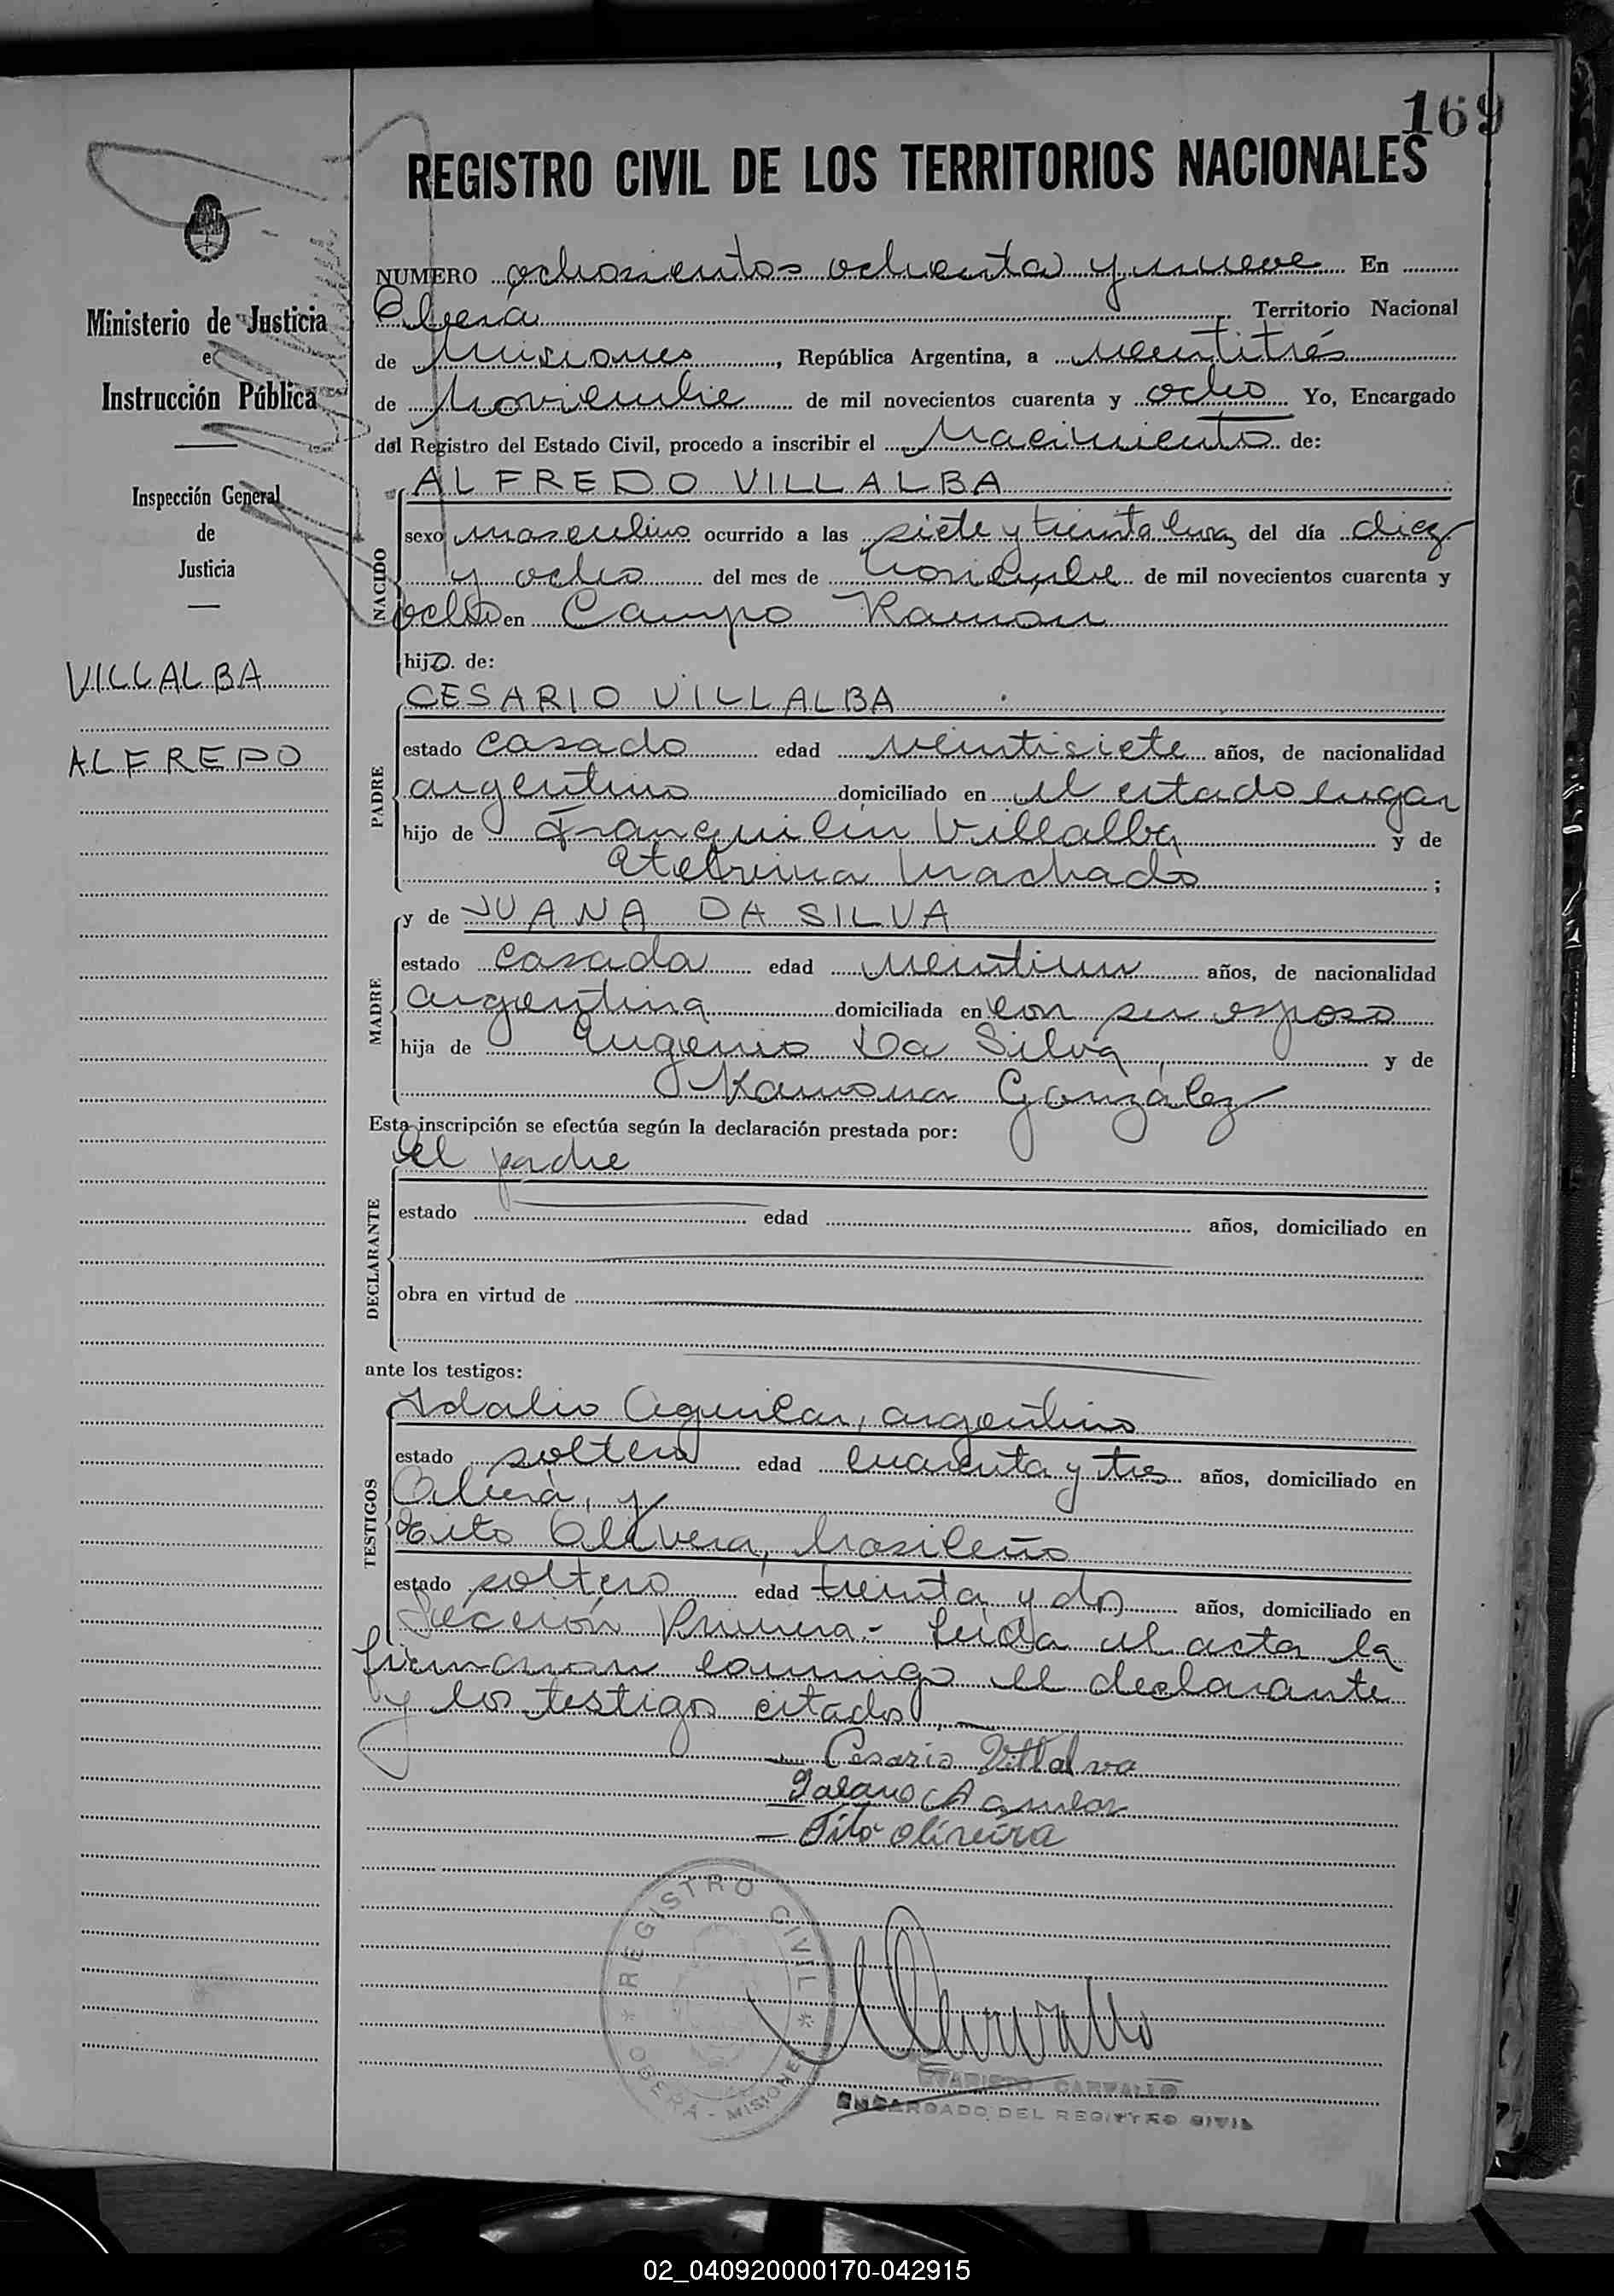 169
REGISTRO CIVIL DE LOS TERRITORIOS NACIONALES
Ministerio de Justicia
e
Instrucción Pública
Inspección General
de
Justicia
VILLALBA
ALFREDO
NUMERO ochosientos ochenta y nueve En
Oberá Territorio Nacional
de Misiones, República Argentina, a veintitrés
de Noviembre de mil novecientos cuarenta y ocho Yo, Encargado
del Registro del Estado Civil, procedo a inscribir el Nacimiento de:
NACIDO
ALFREDO VILLALBA
sexo masculino ocurrido a las siete y treinta horas del día diez
y ocho del mes de Noviembre de mil novecientos cuarenta y
ocho en Campo Ramon
hijo de:
PADRE
CESARIO VILLALBA
estado casado edad veintisiete años, de nacionalidad
argentino domiciliado en el citado lugar
hijo de Franquilin Villalba y de
Etelvina Machado ;
MADRE
y de JUANA DA SILVA
estado casada edad veintiun años, de nacionalidad
argentina domiciliada en con su esposo
hija de Eugenio Da Silva y de
Ramona González
Esta inscripción se efectúa según la declaración prestada por:
DECLARANTE
el padre
estado edad años, domiciliado en
obra en virtud de
ante los testigos:
TESTIGOS
Idalio Aguilar, argentino
estado soltero edad cuarenta y tres años, domiciliado en
Oberá, y
Tito Olivera, brasileño
estado soltero edad treinta y dos años, domiciliado en
Sección Primera.- Leida el acta la
firmaron conmigo el declarante
y los testigos citados.—
Cesario Villalva
Aguilar
Tito Oliveira
REGISTRO CIVIL
OBERÁ - MISIONES
EVARISTO CARVALLO
ENCARGADO DEL REGISTRO CIVIL
02_040920000170-042915